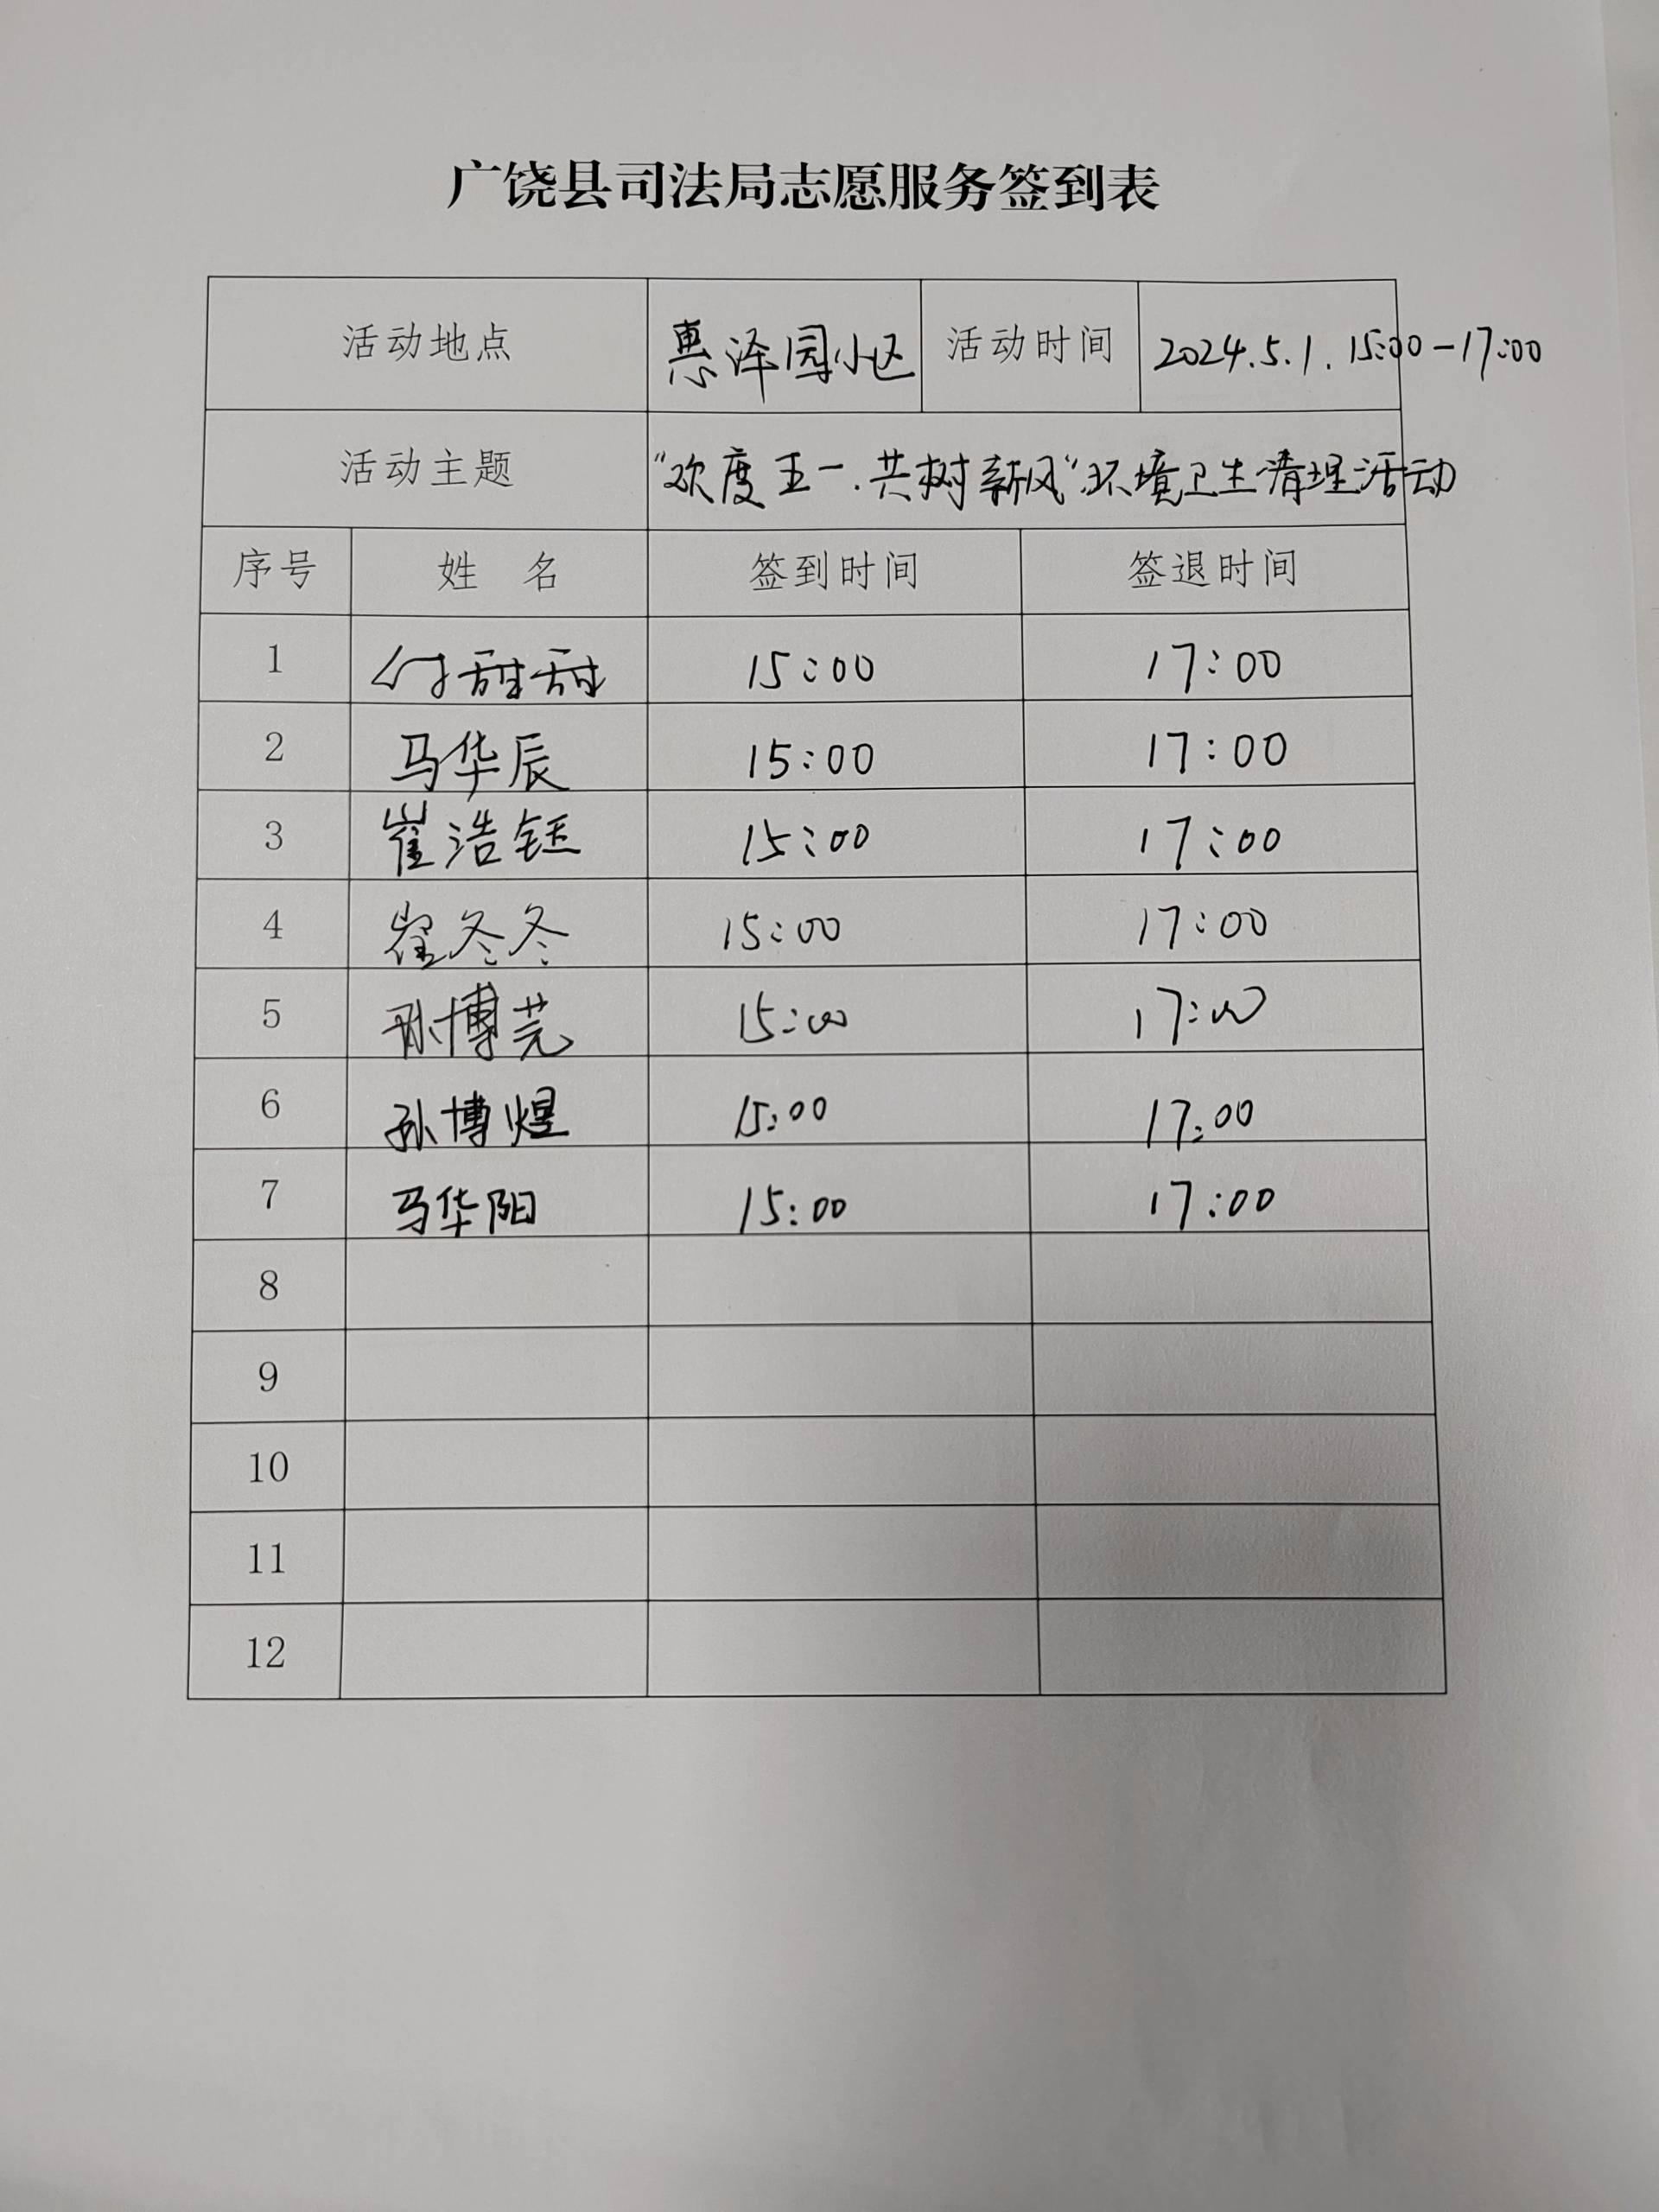 广饶县司法局志愿服务签到表
活动地点 惠泽园小区 活动时间 2024.5.1. 15:00-17:00
活动主题 “欢度五一.共树新风”环境卫生清理活动
序号 姓 名 签到时间 签退时间
1 付甜甜 15:00 17:00
2 马华辰 15:00 17:00
3 崔浩钰 15:00 17:00
4 崔冬冬 15:00 17:00
5 孙博芫 15:00 17:00
6 孙博煜 15:00 17:00
7 马华阳 15:00 17:00
8
9
10
11
12